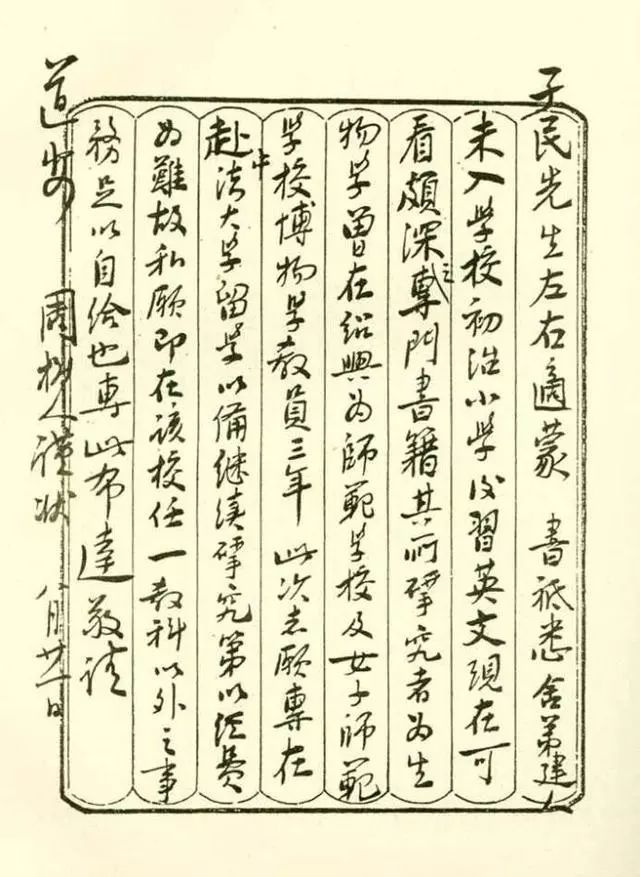 子民先生左右適蒙　書祗悉舍弟建人
未入學校初治小學後習英文現在可
看頗深之專門書籍其所研究者為生
物學曾在紹興為師範學校及女子師範
學校博物學教員三年此次志願專在
赴中法大學留學以備繼續研究第以經費
為難故私願即在該校任一教科以外之事
務足以自給也專此布達敬請
道安　周樹人謹狀　八月廿一日